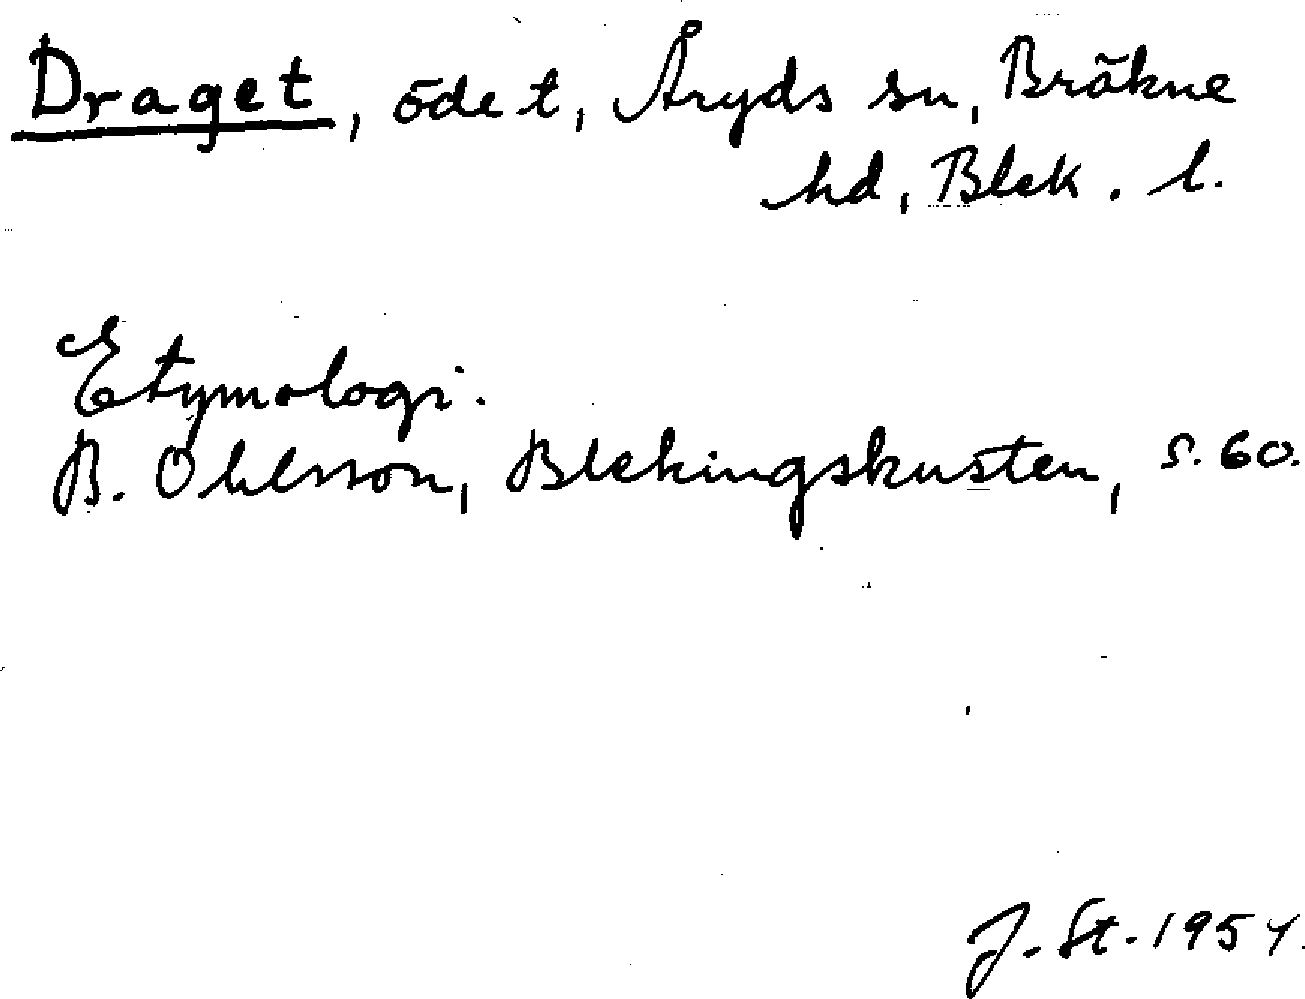 Draget, öde t, Åryds sn, Bräkne
hd, Blek. l.
Etymologi.
B. Ohlsson, Blekingskusten, s. 60.
J. St. 1954.